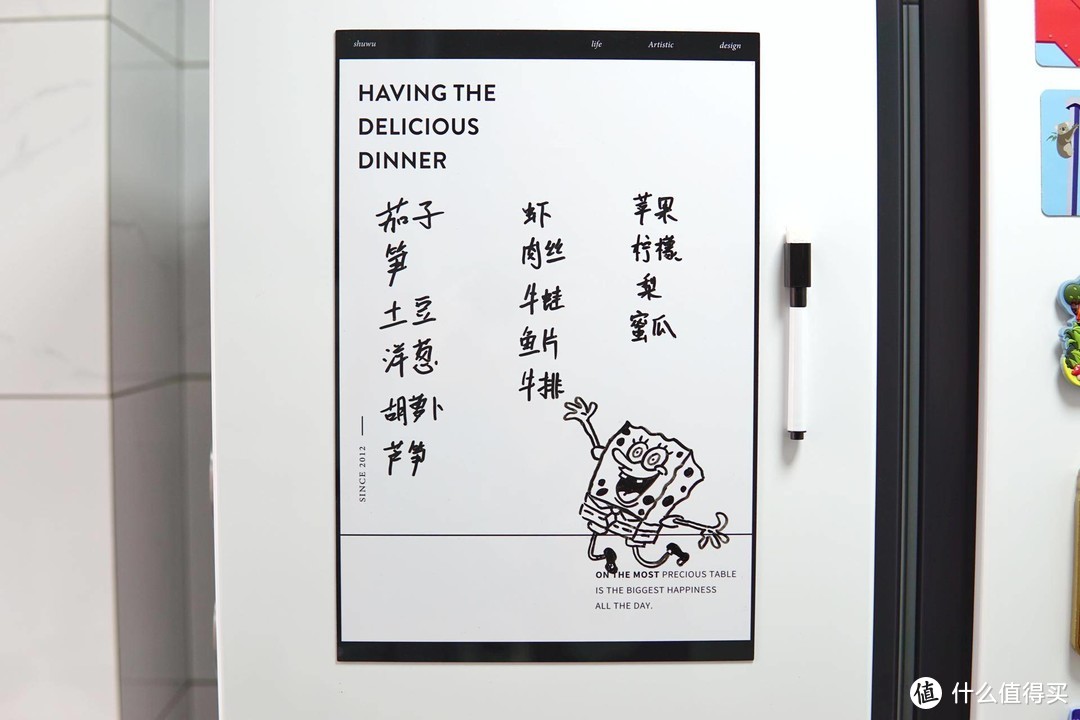 shuwu life Artistic design
HAVING THE
DELICIOUS
DINNER
茄子
笋
土豆
洋葱
胡萝卜
芦笋
虾
肉丝
牛蛙
鱼片
牛排
苹果
柠檬
梨
蜜瓜
SINCE 2012
ON THE MOST PRECIOUS TABLE
IS THE BIGGEST HAPPINESS
ALL THE DAY.
值 什么值得买